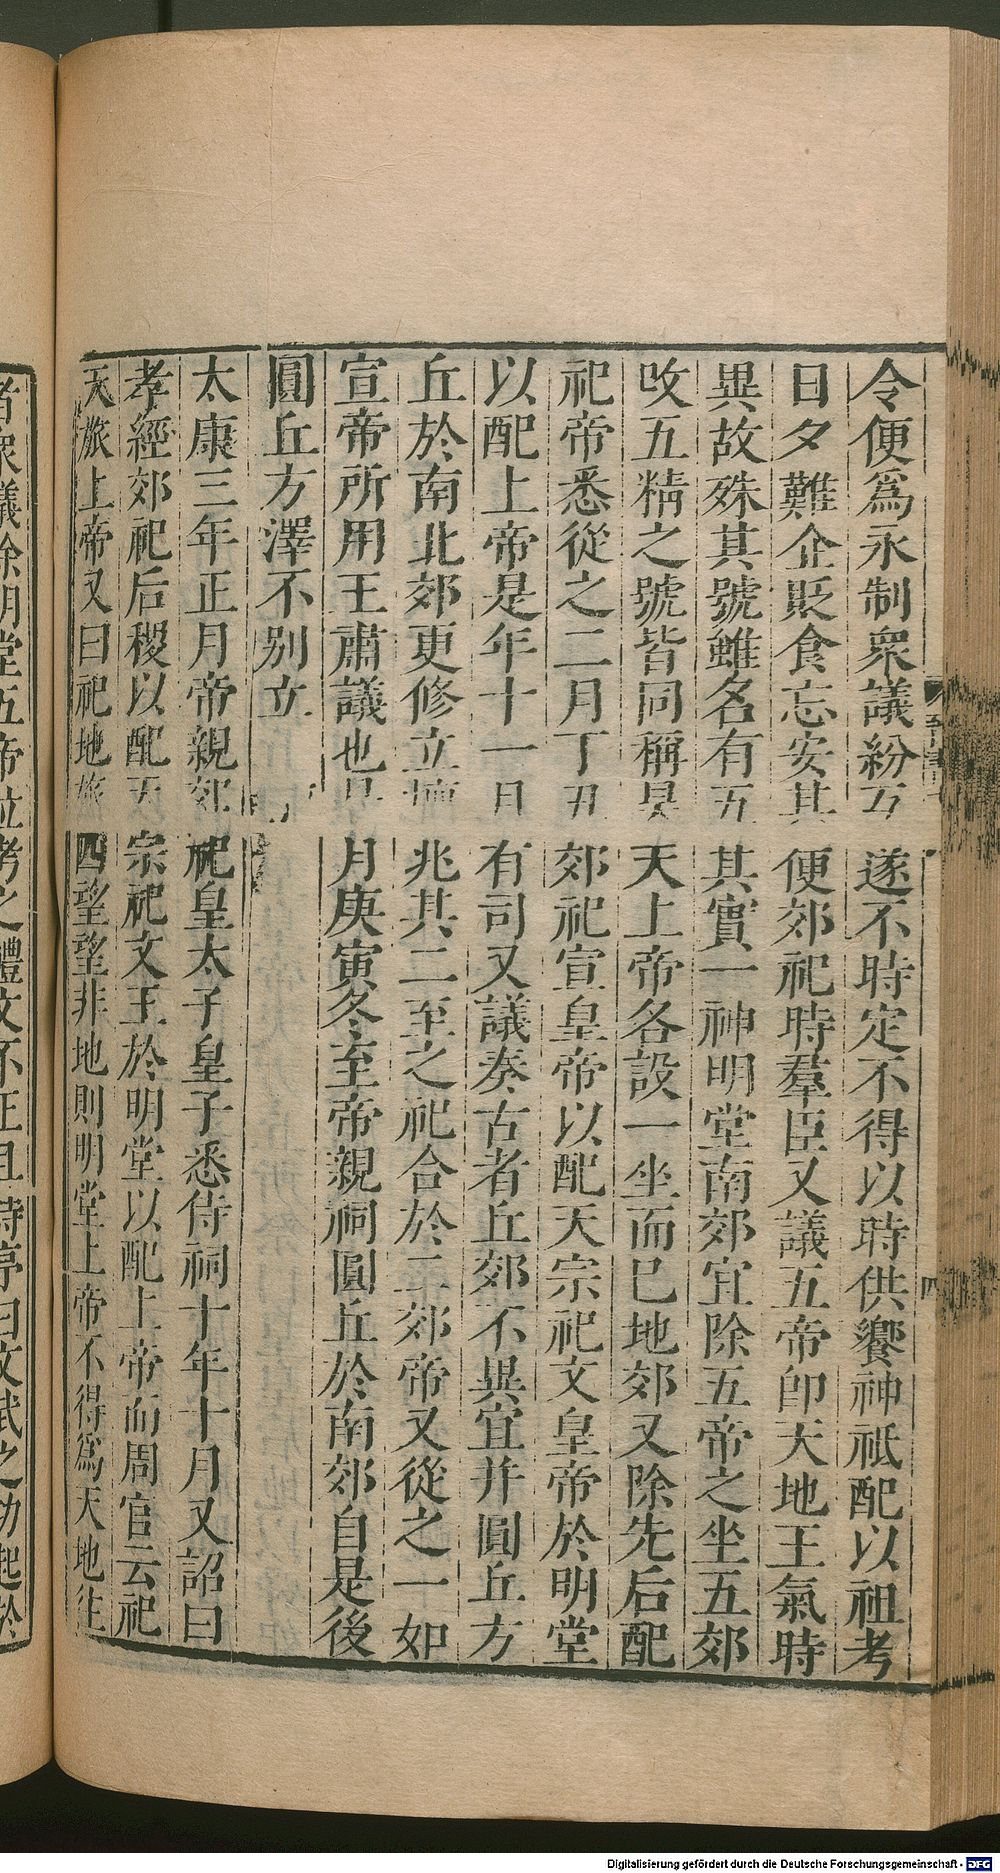 令便爲永制衆議紛互遂不時定不得以時供饗神祗配以祖考
日夕難企貶食忘安其便郊祀時羣臣又議五帝卽天地王氣時
異故殊其號雖名有五其實一神明堂南郊宜除五帝之坐五郊
改五精之號皆同稱昊天上帝各設一坐而巳地郊又除先后配
祀帝悉從之二月丁丑郊祀宣皇帝以配天宗祀文皇帝於明堂
以配上帝是年十一月有司又議奏古者丘郊不異宜并圓丘方
丘於南北郊更修立壇兆其二至之祀合於二郊帝又從之一如
宣帝所用王肅議也是月庚寅冬至帝親祠圓丘於南郊自是後
圓丘方澤不別立
太康三年正月帝親郊祀皇太子皇子悉侍祠十年十月又詔曰
孝經郊祀后稷以配天宗祀文王於明堂以配上帝而周官云祀
天旅上帝又曰祀地旅四望望非地則明堂上帝不得爲天地往
者衆議除明堂五帝位考之禮文不正且詩序曰文武之功起於
四
Digitalisierung gefördert durch die Deutsche Forschungsgemeinschaft - DFG